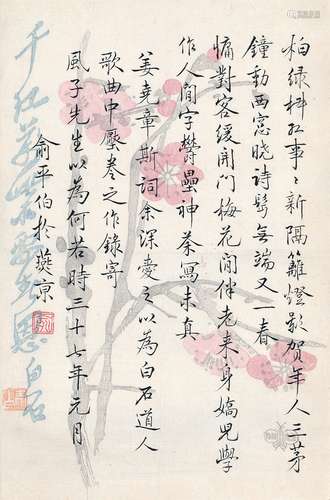 柏綠椒紅事〻新隔籬燈影賀年人三茅
鐘動西窓曉詩鬢無端又一春
慵對客緩開門梅花閒伴老來身嬌兒學
作人間字鬱壘神荼寫未真
姜堯章斯詞余深愛之以為白石道人
歌曲中壓卷之作錄寄
風子先生以為何若時三十七年元月
俞平伯於燕京
白石